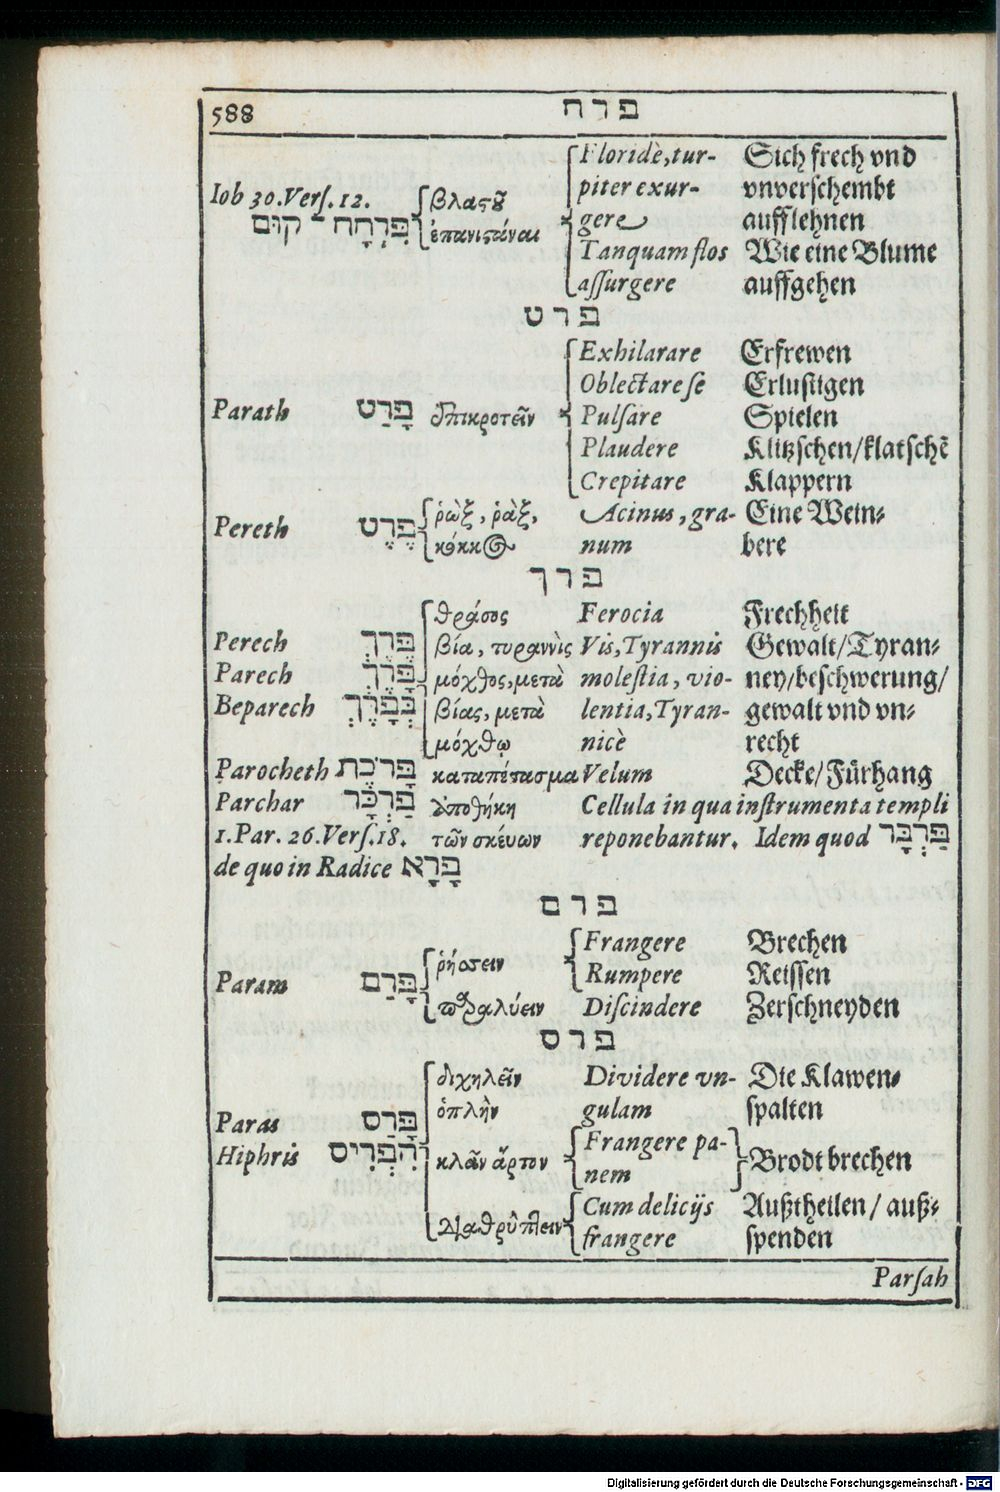 588 פרח
Floridè, tur- Sich frech vnd
Iob 30. Vers. 12. βλαςοῦ piter exur- vnverschembt
פִּרְחָח־קוּם ἐπανιςάναι gere aufflehnen
Tanquam flos Wie eine Blume
assurgere auffgehen
פרט
Exhilarare Erfrewen
Oblectare se Erlustigen
Parath פָּרַט ἐπικροτεῖν Pulsare Spielen
Plaudere Klitzschen/klatschē
Crepitare Klappern
Pereth פֶּרֶט ῥὼξ, ῥὰξ, Acinus, gra- Eine Wein-
κόκκος num bere
פרך
θράσος Ferocia Frechheit
Perech פֶּרֶךְ βία, τυραννὶς Vis, Tyrannis Gewalt/Tyran-
Parech פָּרֶךְ μόχθος, μετὰ molestia, vio- ney/beschwerung/
Beparech בְּפָרֶךְ βίας, μετὰ lentia, Tyran- gewalt vnd vn-
μόχθῳ nicè recht
Parocheth פָּרֹכֶת καταπέτασμα Velum Decke/Fürhang
Parchar פַּרְכָּר ἀποθήκη Cellula in qua instrumenta templi
1. Par. 26. Vers. 18. τῶν σκέυων reponebantur. Idem quod פַּרְבָּר
de quo in Radice פָּרָא
פרם
Frangere Brechen
Param פָּרַם ῥήσσειν Rumpere Reissen
παραλύειν Discindere Zerschneyden
פרס
διχηλεῖν Dividere vn- Die Klawen-
Paras פָּרַס ὁπλὴν gulam spalten
Hiphris הִפְרִיס κλᾶν ἄρτον Frangere pa- Brodt brechen
nem
Cum delicijs Außtheilen / auß-
διαθρύπτειν frangere spenden
Parsah
Digitalisierung gefördert durch die Deutsche Forschungsgemeinschaft - DFG